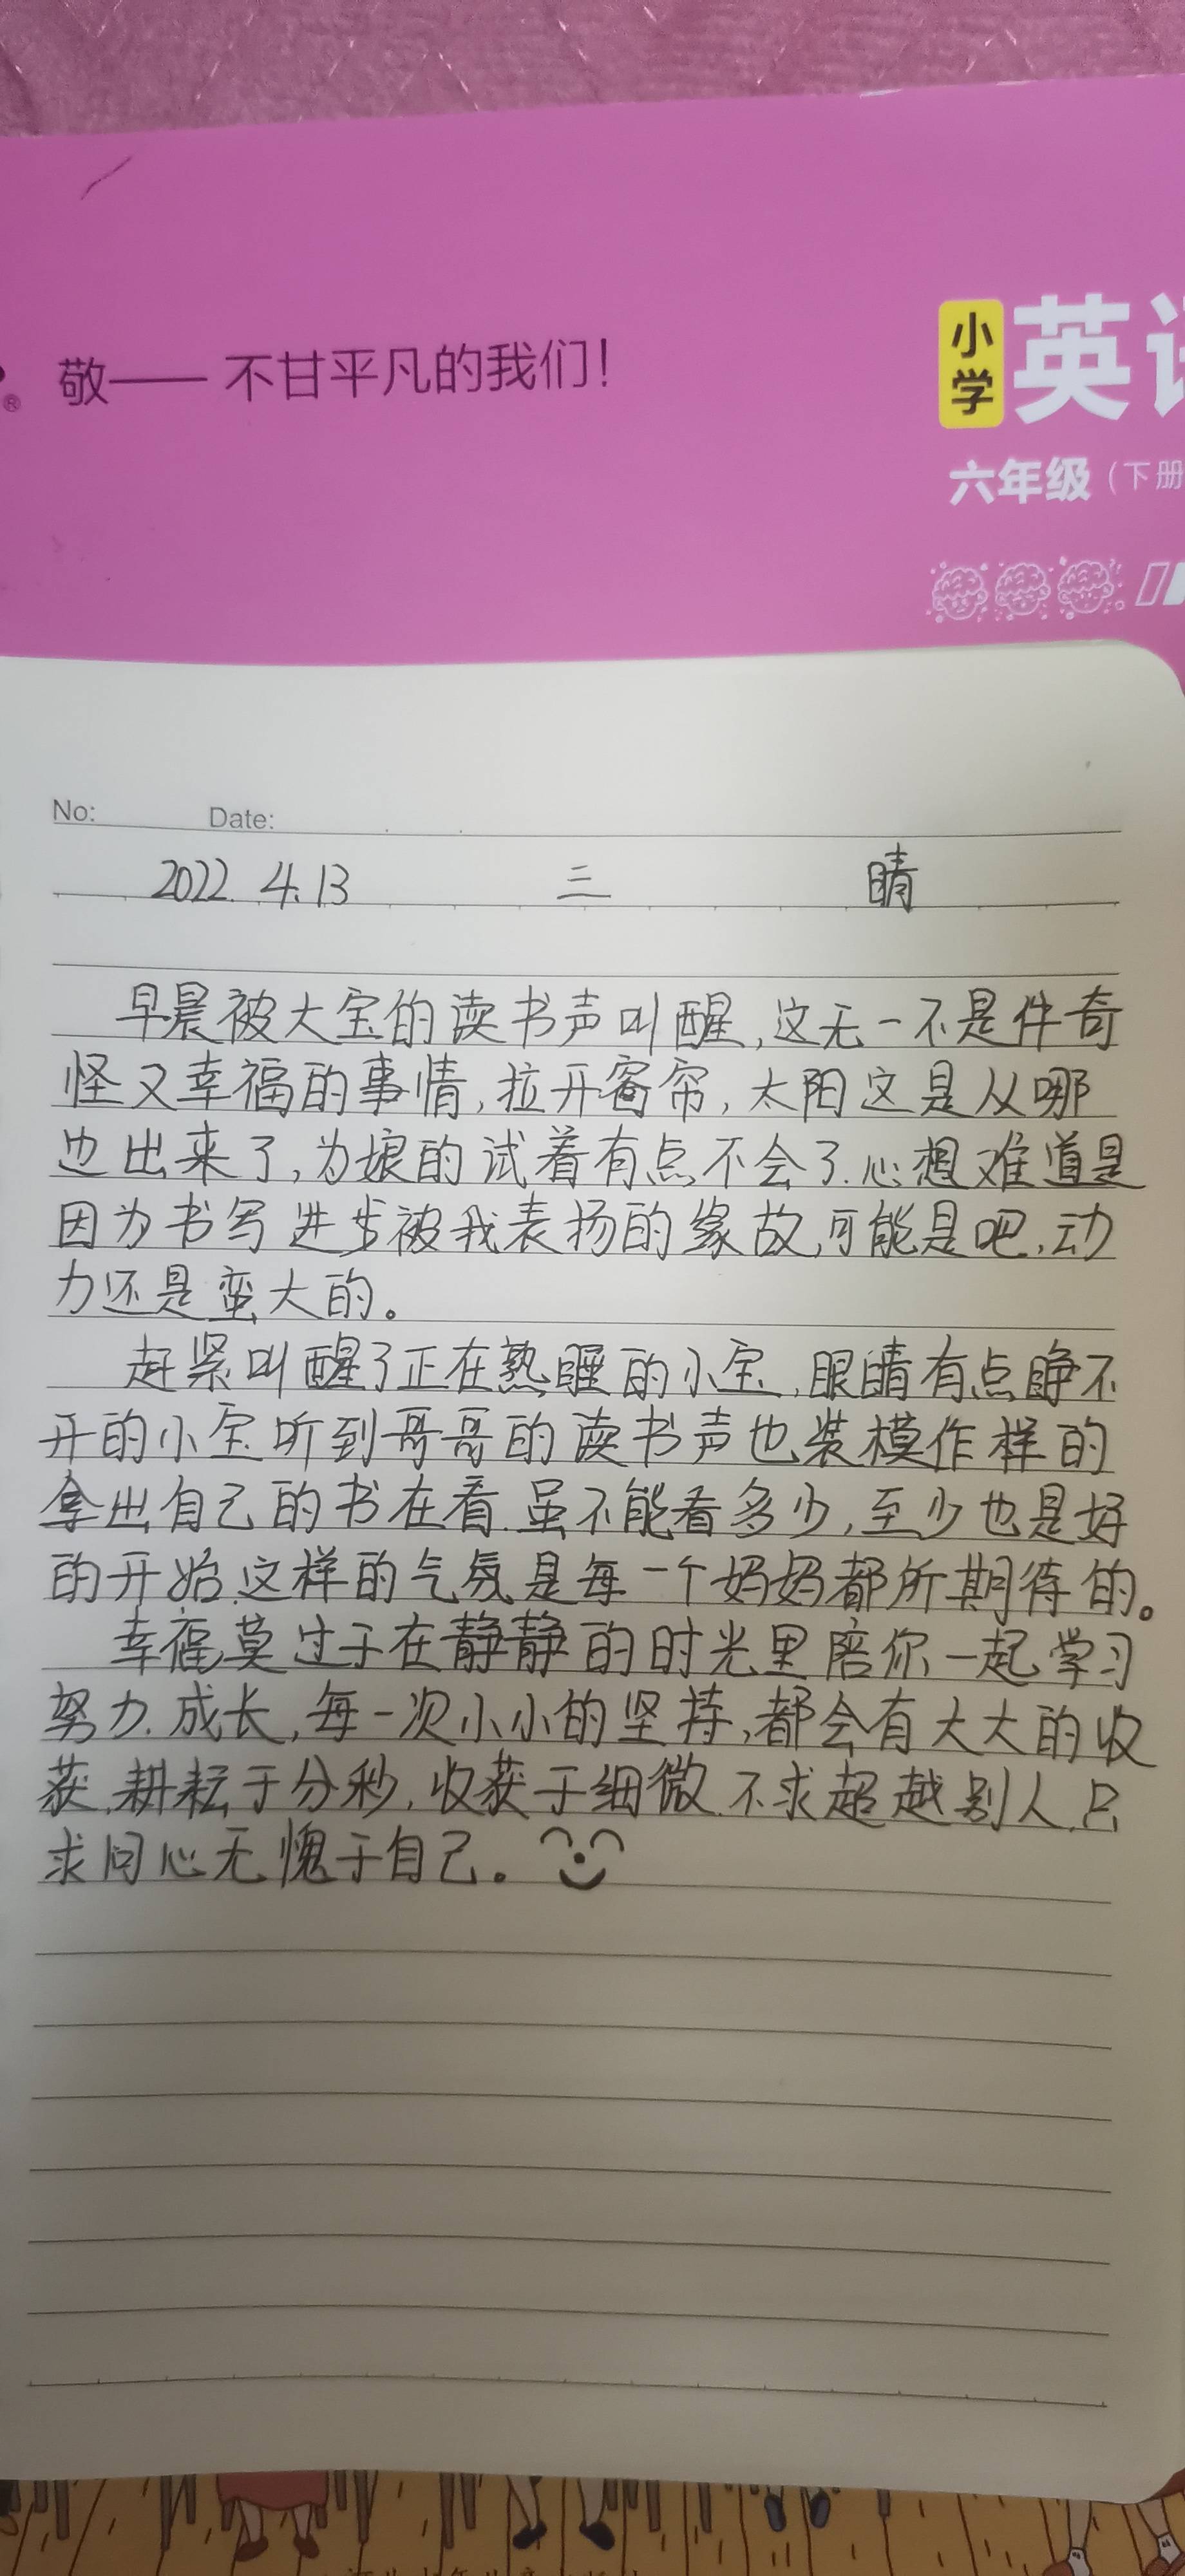 敬——不甘平凡的我们！
®
小学
英
六年级（下册
No: Date:
2022.4.13 三 晴
早晨被大宝的读书声叫醒,这无一不是件奇
怪又幸福的事情,拉开窗帘,太阳这是从哪
边出来了,为娘的试着有点不会了.心想难道是
因为书写进步被我表扬的缘故,可能是吧,动
力还是蛮大的。
赶紧叫醒了正在熟睡的小宝,眼睛有点睁不
开的小宝听到哥哥的读书声也装模作样的
拿出自己的书在看.虽不能看多少,至少也是好
的开始.这样的气氛是每一个妈妈都所期待的。
幸福莫过于在静静的时光里陪你一起学习
努力.成长,每一次小小的坚持,都会有大大的收
获.耕耘于分秒,收获于细微.不求超越别人,只
求问心无愧于自己。